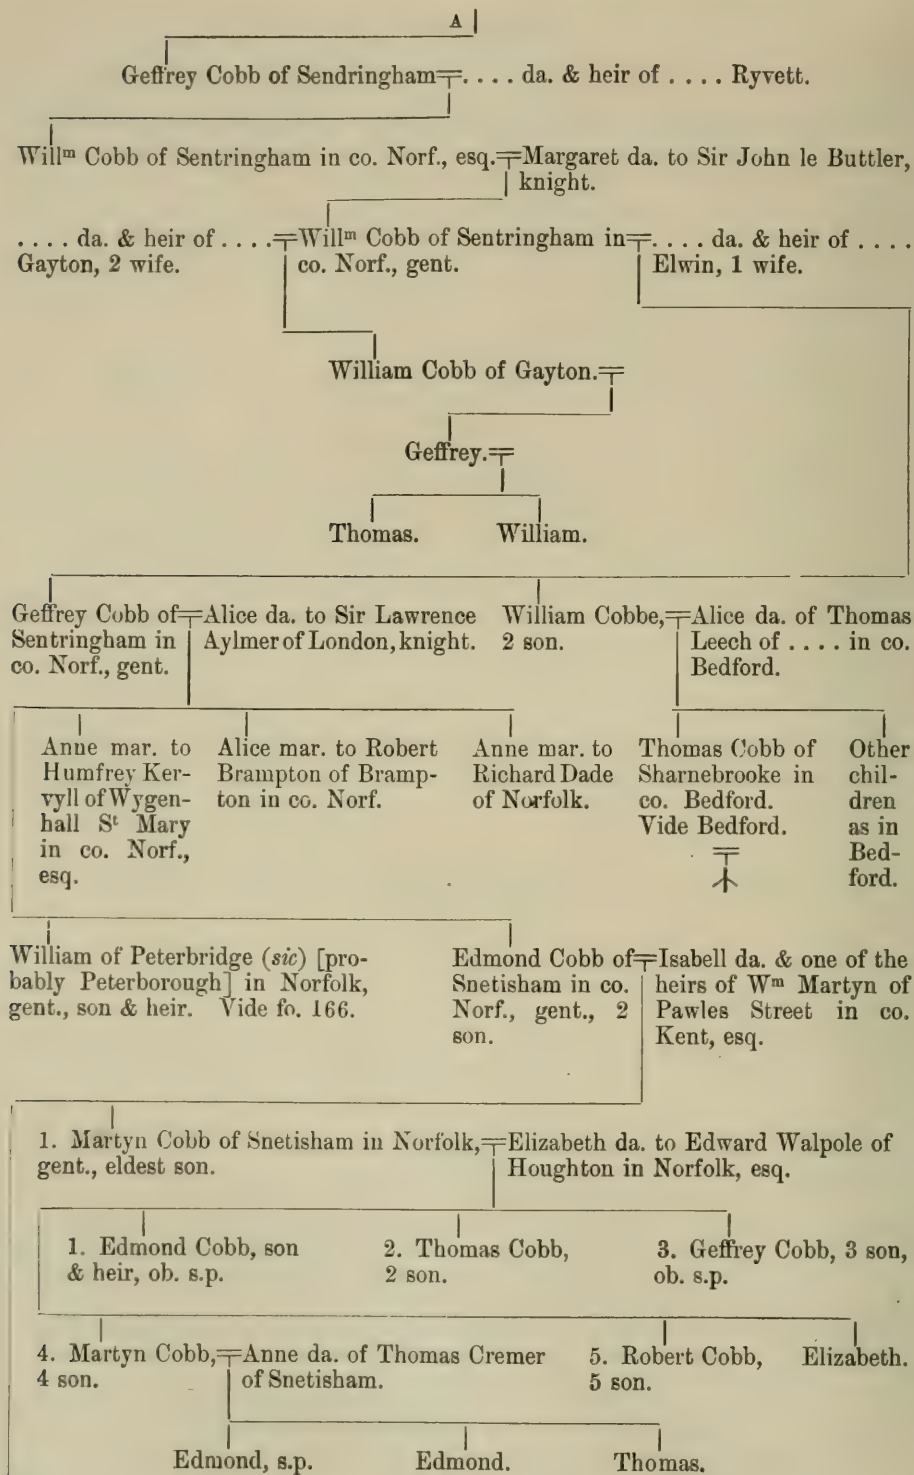 A
Geffrey Cobb of Sendringham=. . . . da. & heir of . . . . Ryvett.
Willᵐ Cobb of Sentringham in co. Norf., esq.=Margaret da. to Sir John le Buttler,
knight.
. . . . da. & heir of . . . .=Willᵐ Cobb of Sentringham in=. . . . da. & heir of . . . .
Gayton, 2 wife. co. Norf., gent. Elwin, 1 wife.
William Cobb of Gayton.=
Geffrey.=
Thomas. William.
Geffrey Cobb of=Alice da. to Sir Lawrence
Sentringham in Aylmer of London, knight.
co. Norf., gent.
William Cobbe,=Alice da. of Thomas
2 son. Leech of . . . . in co.
Bedford.
Anne mar. to
Humfrey Ker-
vyll of Wygen-
hall Sᵗ Mary
in co. Norf.,
esq.
Alice mar. to Robert
Brampton of Bramp-
ton in co. Norf.
Anne mar. to
Richard Dade
of Norfolk.
Thomas Cobb of
Sharnebrooke in
co. Bedford.
Vide Bedford.
Other
chil-
dren
as in
Bed-
ford.
William of Peterbridge (sic) [pro-
bably Peterborough] in Norfolk,
gent., son & heir. Vide fo. 166.
Edmond Cobb of=Isabell da. & one of the
Snetisham in co. heirs of Wᵐ Martyn of
Norf., gent., 2 Pawles Street in co.
son. Kent, esq.
1. Martyn Cobb of Snetisham in Norfolk,=Elizabeth da. to Edward Walpole of
gent., eldest son. Houghton in Norfolk, esq.
1. Edmond Cobb, son
& heir, ob. s.p.
2. Thomas Cobb,
2 son.
3. Geffrey Cobb, 3 son,
ob. s.p.
4. Martyn Cobb,=Anne da. of Thomas Cremer
4 son. of Snetisham.
5. Robert Cobb,
5 son.
Elizabeth.
Edmond, s.p. Edmond. Thomas.